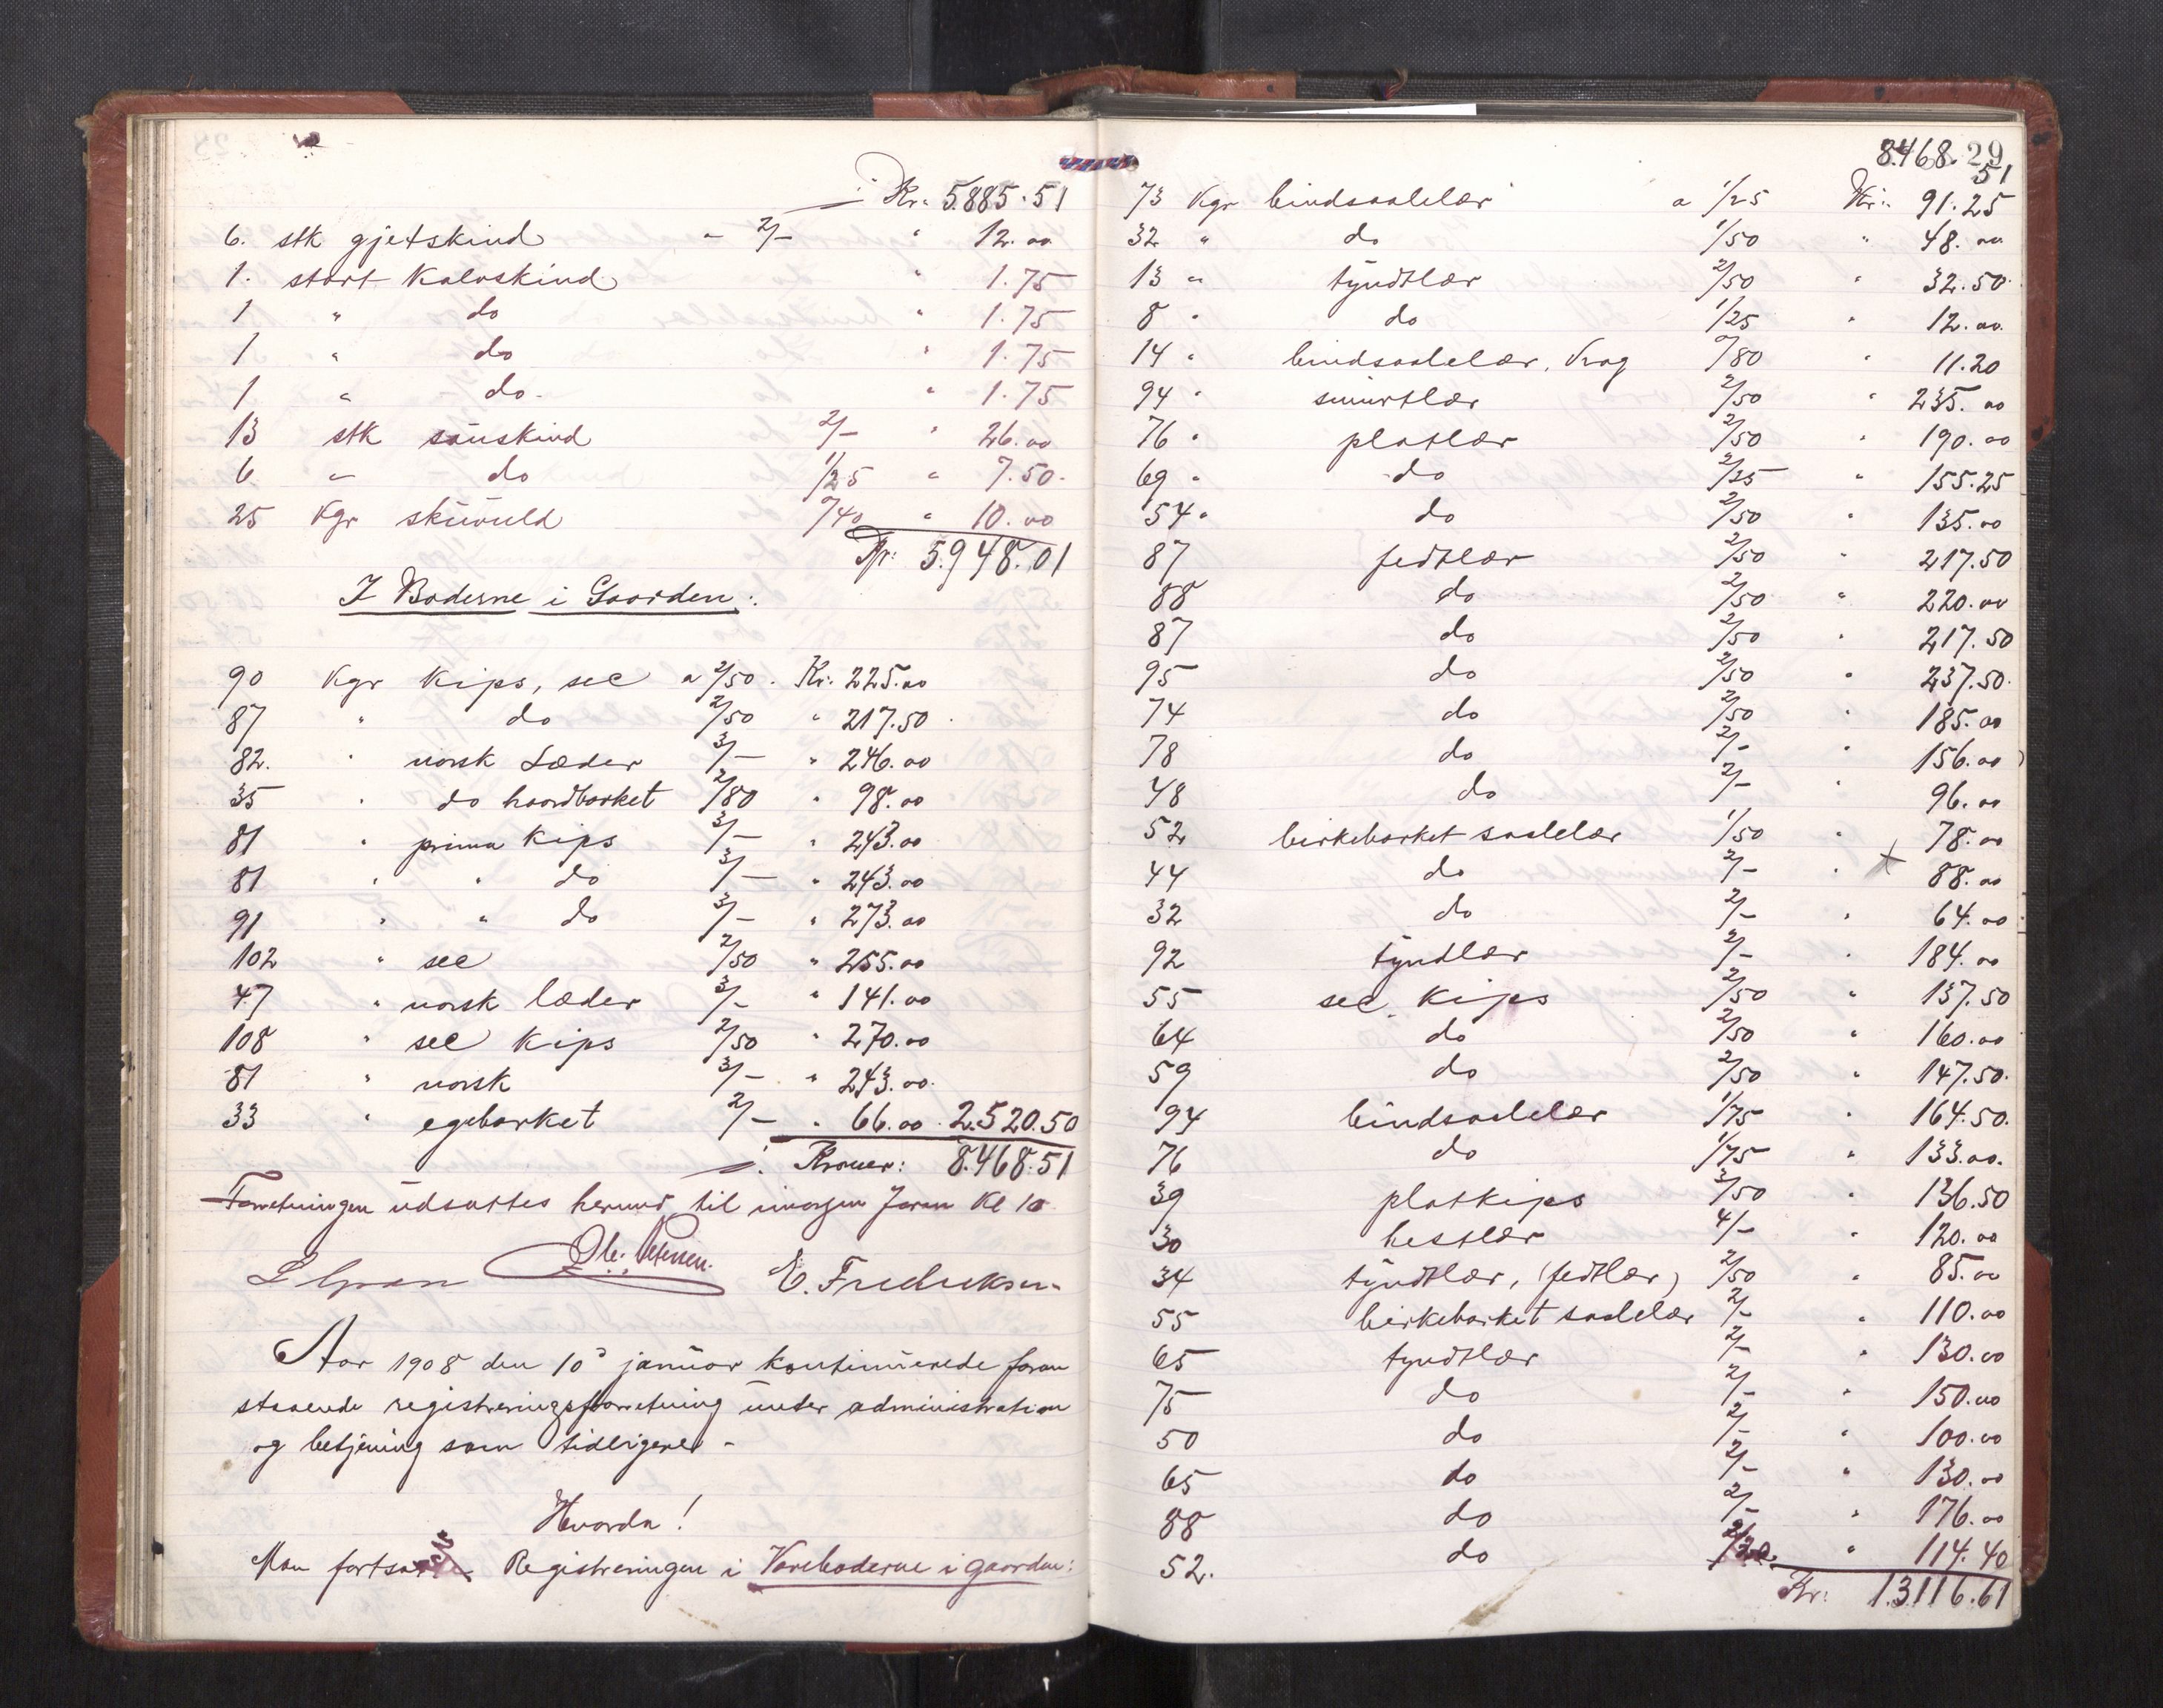 Kr. 5.885.51
6. stk gjetskind - 2/- " 12.00
1. stort Kalvskind " 1.75
1 " do " 1.75
1 " do " 1.75
1 " do. " 1.75
13 stk sauskind 2/- " 26.00
6 " do 1/25 " 7.50.
25 Kgr skuvuld 0/40 " 10.00
Kr: 5.948.01
I Boderne i Gaarden:
90 Kgr Kips, sec a 2/50. Kr. 225.00
87 " do 2/50 " 217.50
82. " norsk Læder 3/- " 246.00
35 " do haardbarket 2/80 " 98.00
81 " prima Kips 3/- " 243.00
81 " " do 3/- " 243.00
91 " " do 3/- " 273.00
102 " sec 2/50 " 255.00
47 " norsk læder 3/- " 141.00
108 " sec Kips 2/50 " 270.00
81 " norsk 3/- " 243.00.
33 " egebarket 2/- " 66.00 2.520.50
Kroner: 8.468.51
Forretningen udsattes herunder til imorgen Form Kl 10
E. Fredriksen
Aar 1908 den 10d januar kontinuerede foran
staaende registreringsforretning under administration
og betjening som tidligere -
Hvorda!
Man fortsatte Registreringen i Vareboderne i gaarden:
29
8.468.51
73 Kgr bindsaalelær a 1/25 Kr: 91.25
32 " do 1/50 " 48.00
13 " tyndtlær 2/50 " 32.50
8 " do 1/25 " 12.00
14 " bindsaalelær, Vrag 0/80 " 11.20
94 " smurtlær 2/50 " 235.00
76 " platlær 2/50 " 190.00
69 " do 2/25 " 155.25
54 " do 2/50 " 135.00
87 fedtlær 2/50 " 217.50
88 do 2/50 " 220.00
87 do 2/50 " 217.50
95 do 2/50 " 237.50.
74 do 2/50 " 185.00
78 do 2/- " 156.00
48 do 2/- " 96.00
52 birkebarket saalelær 1/50 " 78.00
44 do 2/- " x 88.00
32 do 2/- " 64.00
92 tyndlær 2/- " 184.00
55 sec. Kips 2/50 " 137.50
64 do 2/50 " 160.00
59 do 2/50 " 147.50.
94 bindsaalelær 1/75 " 164.50.
76 do 1/75 " 133.00.
39 platkips 3/50 " 136.50
30 hestlær 4/- " 120.00
34 tyndtlær, (fedtlær) 2/50 " 85.00
55 birkebarket saalelær 2/- " 110.00
65 tyndtlær 2/- " 130.00
75 do 2/- " 150.00
50 do 2/- " 100.00
65 do 2/- " 130.00
88 do 2/- " 176.00
52. do 2/20. " 114.40
Kr: 13.116.61